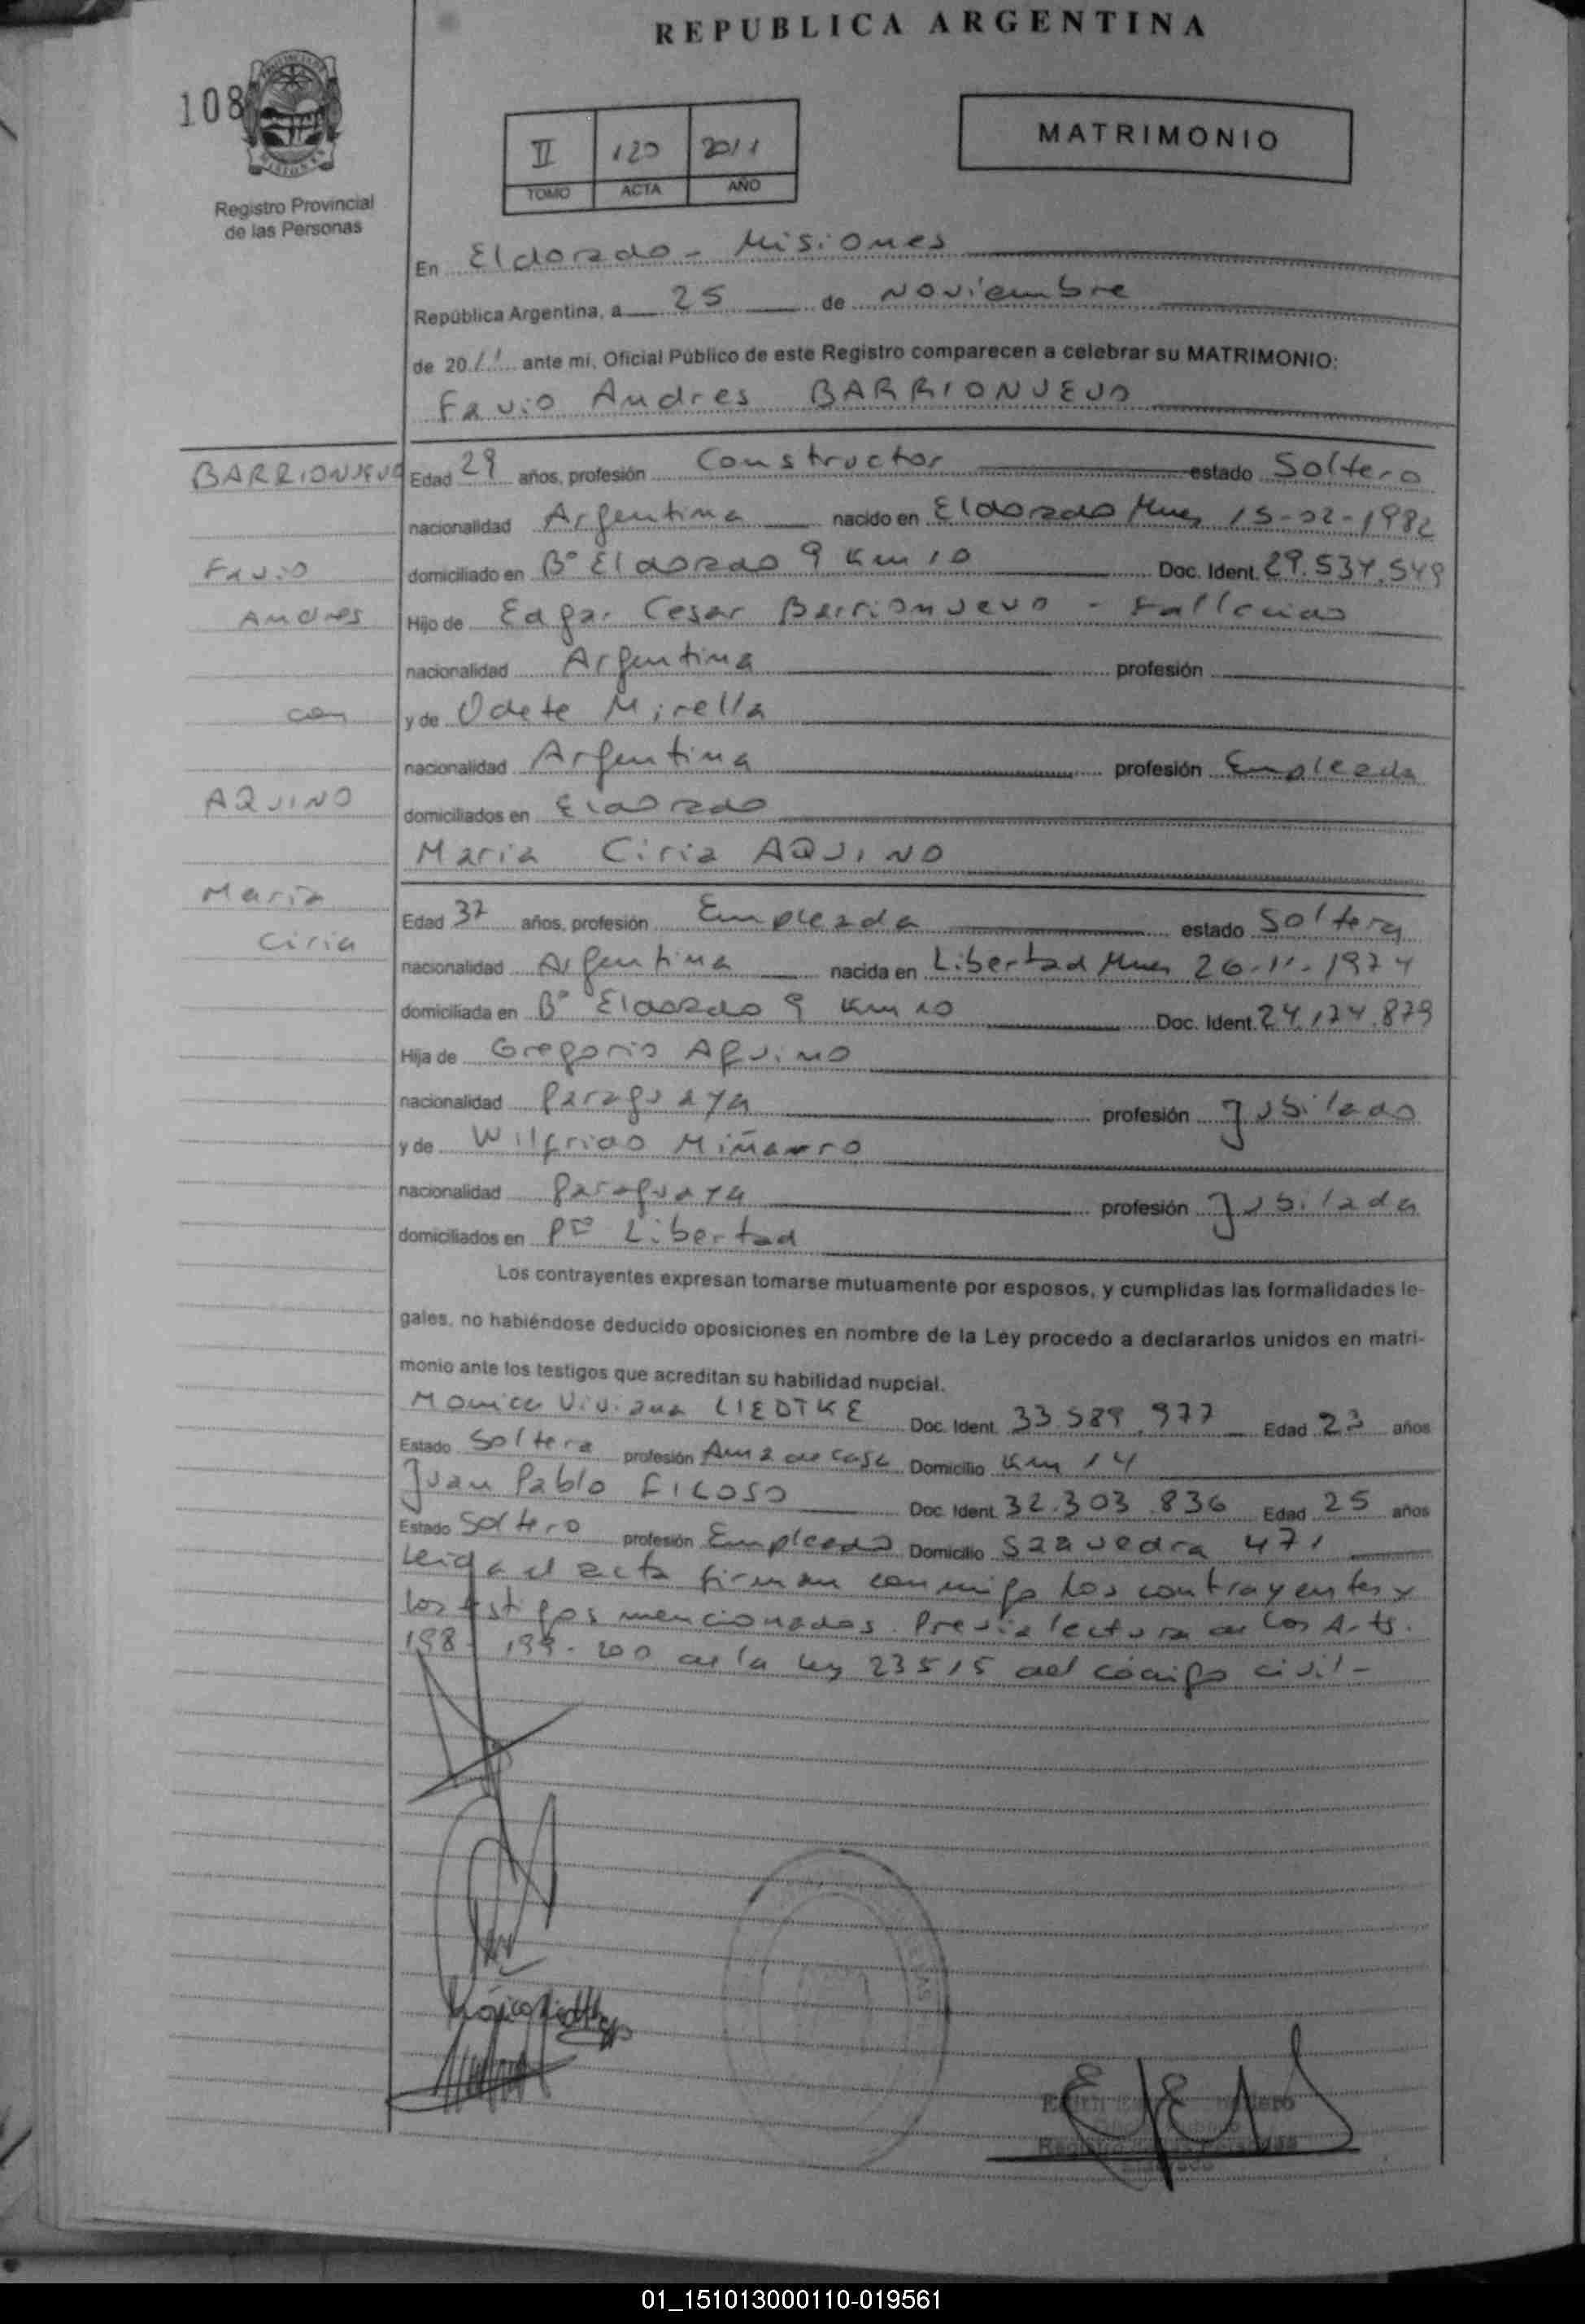 REPUBLICA ARGENTINA
108
Registro Provincial
de las Personas
II 120 2011
TOMO ACTA AÑO
MATRIMONIO
En Eldorado - Misiones
República Argentina, a 25 de Noviembre
de 2011 ante mi, Oficial Público de este Registro comparecen a celebrar su MATRIMONIO:
Favio Andres BARRIONUEVO
BARRIONUEVO
Favio
Andres
con
AQUINO
Maria
Ciria
Edad 29 años, profesión Constructor estado Soltero
nacionalidad Argentina nacido en Eldorado Mnes 15-02-1982
domiciliado en B° Eldorado 9 Km 10 Doc. Ident. 29.534.549
Hijo de Edgar Cesar Barrionuevo - Fallecido
nacionalidad Argentina profesión
y de Odete Mirella
nacionalidad Argentina profesión Empleada
domiciliados en Eldorado
Maria Ciria AQUINO
Edad 37 años, profesión Empleada estado Soltera
nacionalidad Argentina nacida en Libertad Mnes 26-11-1974
domiciliada en B° Eldorado 9 Km 10 Doc. Ident. 24.174.879
Hija de Gregorio Aquino
nacionalidad Paraguaya profesión Jubilado
y de Wilfrida Miñarro
nacionalidad Paraguaya profesión Jubilada
domiciliados en Pto Libertad
Los contrayentes expresan tomarse mutuamente por esposos, y cumplidas las formalidades le-
gales, no habiéndose deducido oposiciones en nombre de la Ley procedo a declararlos unidos en matri-
monio ante los testigos que acreditan su habilidad nupcial.
Monica Viviana LIEDTKE Doc. Ident. 33.589.977 Edad 23 años
Estado Soltera profesión Ama de casa Domicilio Km 14
Juan Pablo FICOSO Doc. Ident. 32.303.836 Edad 25 años
Estado Soltero profesión Empleado Domicilio Saavedra 471
Leida el acta firman conmigo los contrayentes y
los testigos mencionados. Previa lectura de los Arts.
198-199-200 de la Ley 23515 del código civil-
01_151013000110-019561